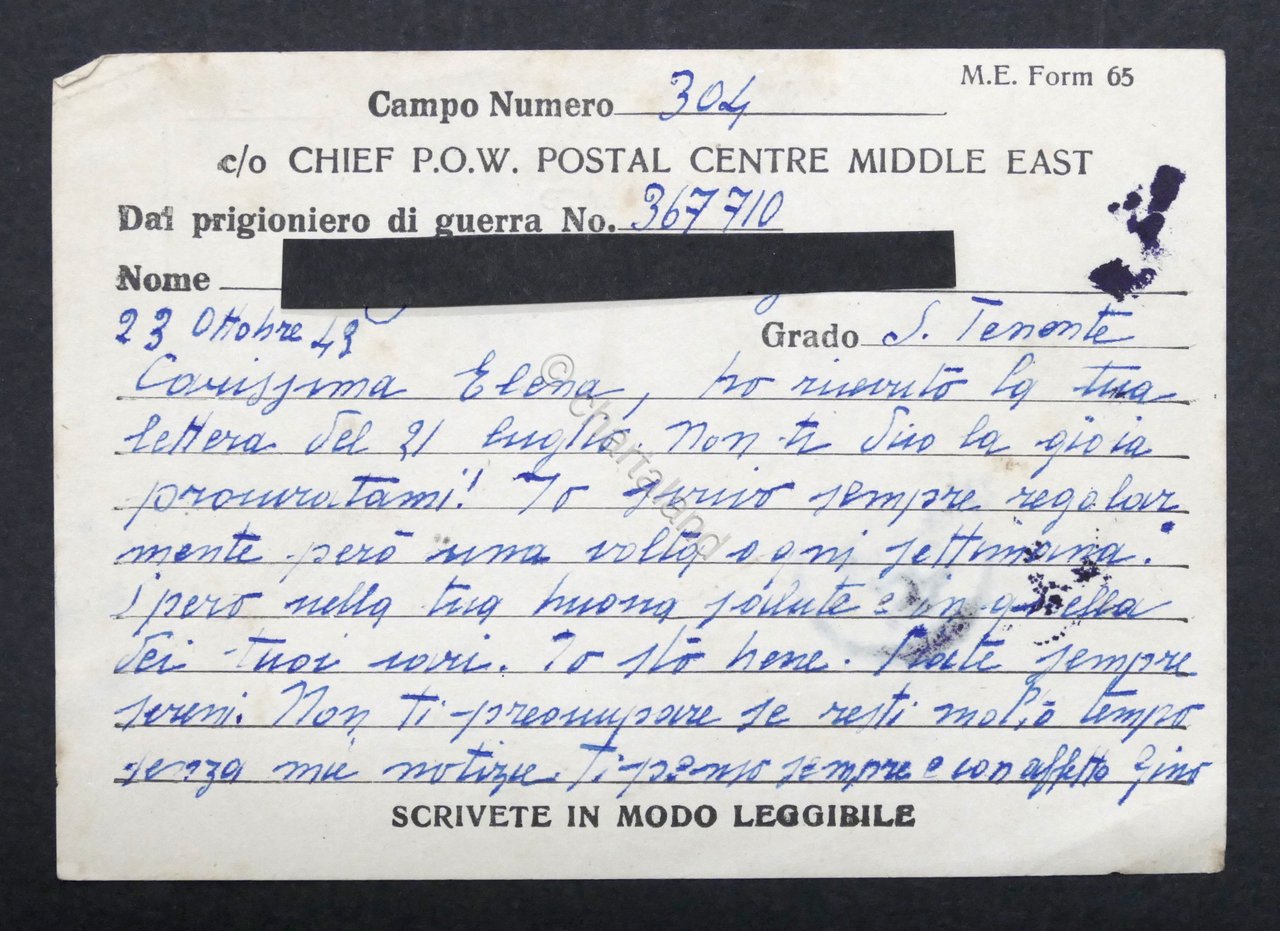 M.E. Form 65
Campo Numero 304
c/o CHIEF P.O.W. POSTAL CENTRE MIDDLE EAST
Dal prigioniero di guerra No. 367710
Nome
23 Ottobre 43
Grado S. Tenente
Carissima Elena, ho ricevuto la tua
lettera del 21 luglio. Non ti dico la gioia
procuratami! Io scrivo sempre regolar
mente però una volta ogni settimana.
Spero nella tua buona salute e in quella
dei tuoi cari. Io stò bene. State sempre
sereni. Non ti preoccupare se resti molto tempo
senza mie notizie. Ti penso sempre e con affetto Gino
SCRIVETE IN MODO LEGGIBILE
© Chartaland